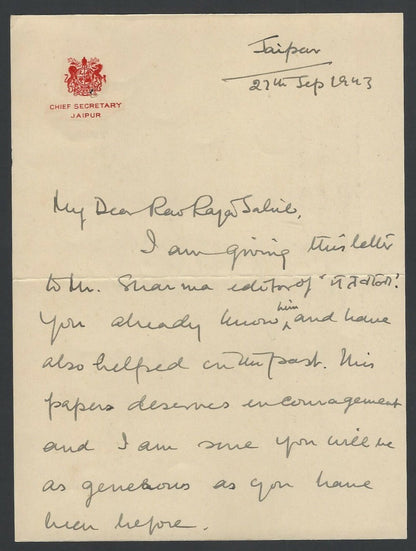 Jaipur
27th Sep 1943
CHIEF SECRETARY
JAIPUR
My Dear Rao Raja Sahib,
I am giving this letter
to Mr. Sharma editor of
You already know him and have
also helped in the past. This
papers deserves encouragement
and I am sure you will be
as generous as you have
been before.